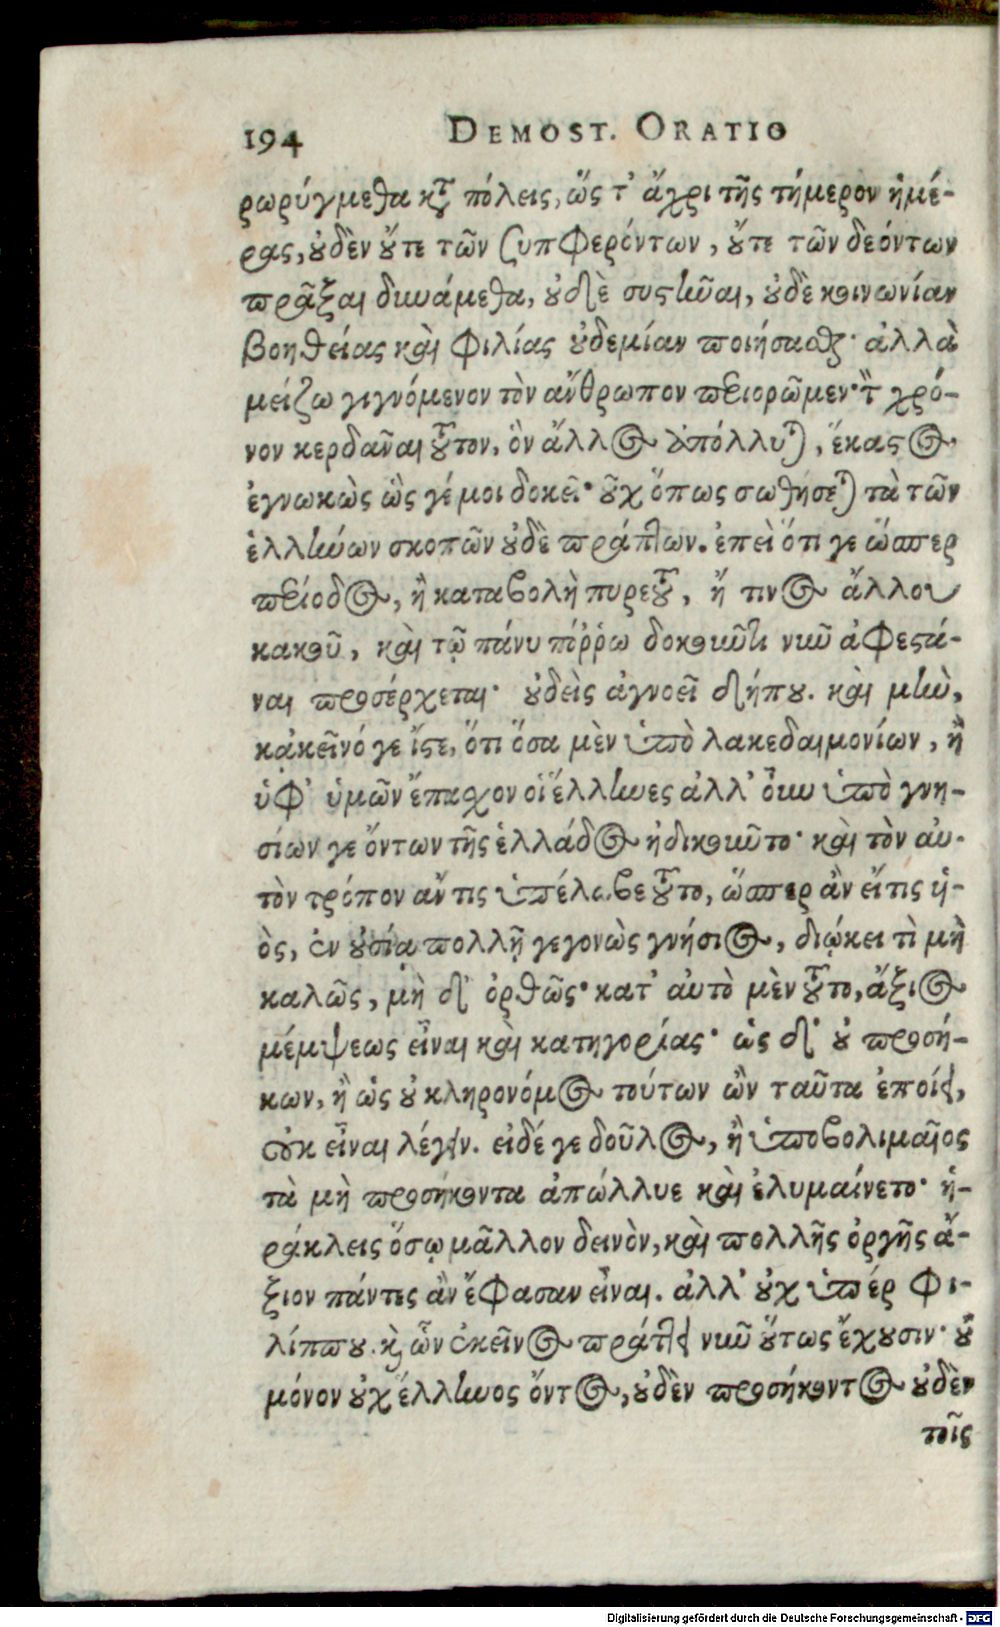 194 DEMOST. ORATIO
ρωρύγμεθα κτ πόλεις, ὥς τ' ἄχρι τῆς τήμερον ἡμέ-
ρας, ȣ̓δὲν ȣ̓́τε τῶν συμφερόντων, ȣ̓́τε τῶν δεόντων
πρᾶξαι δυνάμεθα, ȣ̓δὲ συςῆναι, ȣ̓δὲ κοινωνίαν
βοηθείας καὶ φιλίας ȣ̓δεμίαν ποιήσασθαι· ἀλλὰ
μείζω γιγνόμενον τὸν ἄνθρωπον περιορῶμεν· τὸν χρό-
νον κερδᾶναι τȣ͂τον, ὃν ἄλλος ἀπόλλυται, ἕκαςος
ἐγνωκὼς ὥς γέ μοι δοκεῖ· ȣ̓χ ὅπως σωθήσεται τὰ τῶν
ἑλλήνων σκοπῶν ȣ̓δὲ πράττων. ἐπεὶ ὅτι γε ὥσπερ
περίοδος, ἢ καταβολὴ πυρετȣ͂, ἤ τινος ἄλλου
κακοῦ, καὶ τῷ πάνυ πόῤῥω δοκοῦντι νῦν ἀφεςά-
ναι προσέρχεται· ȣ̓δεὶς ἀγνοεῖ δήπȣ. καὶ μὴν,
κἀκεῖνό γε ἴςε, ὅτι ὅσα μὲν ὑπὸ λακεδαιμονίων, ἢ
ὑφ' ὑμῶν ἔπασχον οἱ ἕλληνες ἀλλ' οὖν ὑπὸ γνη-
σίων γε ὄντων τῆς ἑλλάδος ἠδικοῦντο· καὶ τὸν αὐ-
τὸν τρόπον ἄν τις ὑπέλαβε τȣ͂το, ὥσπερ ἂν εἴτις ὑ-
ὸς, ἐν ȣ̓σίᾳ πολλῇ γεγονὼς γνήσιος, διῴκει τὶ μὴ
καλῶς, μὴ δ' ὀρθῶς· κατ' αὐτὸ μὲν τȣ͂το, ἄξιος
μέμψεως εἶναι καὶ κατηγορίας· ὡς δ' ȣ̓ προσή-
κων, ἢ ὡς ȣ̓ κληρονόμος τούτων ὢν ταῦτα ἐποίει,
οὐκ εἶναι λέγειν. εἰδέ γε δοῦλος, ἢ ὑποβολιμαῖος
τὰ μὴ προσήκοντα ἀπώλλυε καὶ ἐλυμαίνετο· ἡ-
ράκλεις ὅσῳ μᾶλλον δεινὸν, καὶ πολλῆς ὀργῆς ἄ-
ξιον πάντες ἂν ἔφασαν εἶναι. ἀλλ' ȣ̓χ ὑπέρ φι-
λίππȣ. κὶ ὧν ἐκεῖνος πράττει νῦν ȣ̓́τως ἔχȣσιν· ȣ̓
μόνον ȣ̓χ ἕλληνος ὄντος, ȣ̓δὲν προσήκοντος ȣ̓δὲν
τοῖς
Digitalisierung gefördert durch die Deutsche Forschungsgemeinschaft - DFG